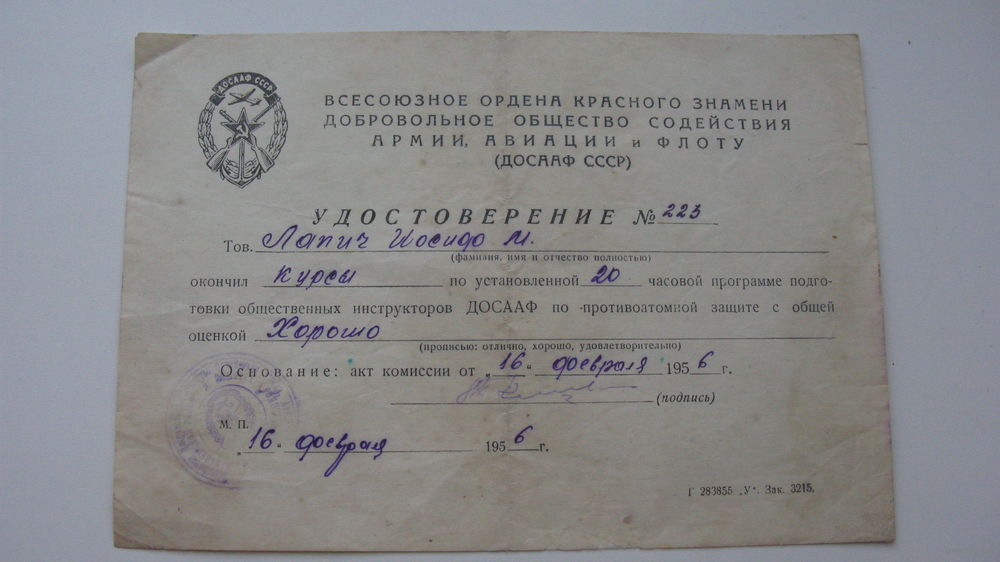 ДОСААФ СССР
ВСЕСОЮЗНОЕ ОРДЕНА КРАСНОГО ЗНАМЕНИ
ДОБРОВОЛЬНОЕ ОБЩЕСТВО СОДЕЙСТВИЯ
АРМИИ, АВИАЦИИ и ФЛОТУ
(ДОСААФ СССР)
УДОСТОВЕРЕНИЕ № 223
Тов. Лапич Иосифо М.
(фамилия, имя и отчество полностью)
окончил курсы по установленной 20 часовой программе подго-
товки общественных инструкторов ДОСААФ по противоатомной защите с общей
оценкой Хорошо
(прописью: отлично, хорошо, удовлетворительно)
Основание: акт комиссии от „16“ февраля 1956 г.
(подпись)
М. П.
„16“ февраля 1956 г.
Г 283855 „У“. Зак. 3215.